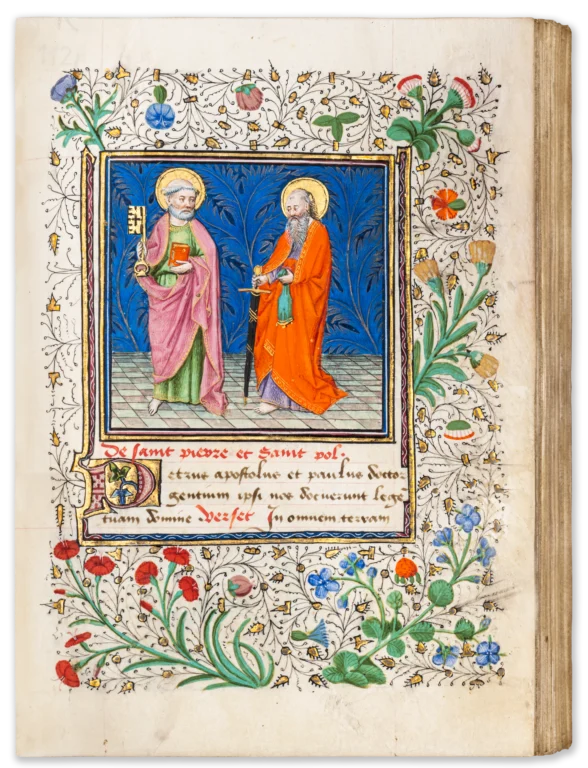 De saint pierre et saint pol.
Petrus apostolus et paulus docto
gentium ipsi nos docuerunt lege
tuam domine Verset In omnem terram